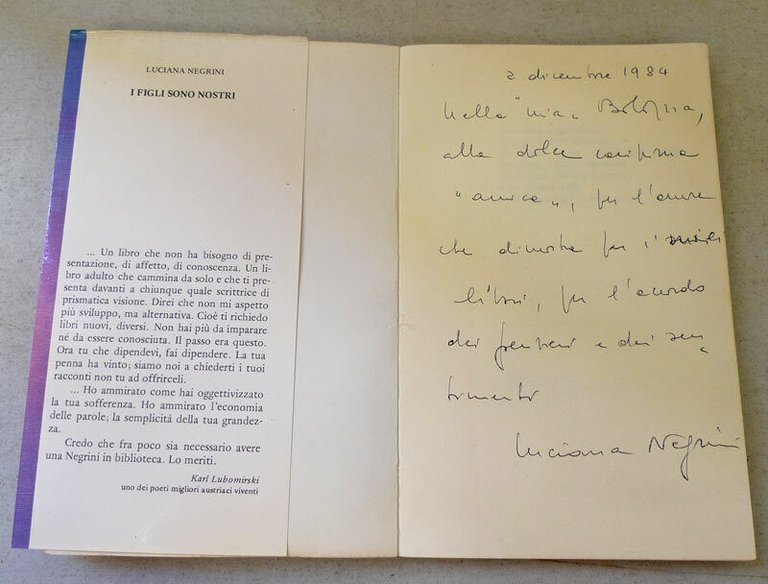 LUCIANA NEGRINI
I FIGLI SONO NOSTRI
... Un libro che non ha bisogno di pre-
sentazione, di affetto, di conoscenza. Un li-
bro adulto che cammina da solo e che ti pre-
senta davanti a chiunque quale scrittrice di
prismatica visione. Direi che non mi aspetto
più sviluppo, ma alternativa. Cioè ti richiedo
libri nuovi, diversi. Non hai più da imparare
né da essere conosciuta. Il passo era questo.
Ora tu che dipendevi, fai dipendere. La tua
penna ha vinto; siamo noi a chiederti i tuoi
racconti non tu ad offrirceli.
... Ho ammirato come hai oggettivizzato
la tua sofferenza. Ho ammirato l'economia
delle parole; la semplicità della tua grandez-
za.
Credo che fra poco sia necessario avere
una Negrini in biblioteca. Lo meriti.
Karl Lubomirski
uno dei poeti migliori austriaci viventi
2 dicembre 1984
Nella "mia" Bologna,
alla dolce carissima
"amica", per l'amore
che dimostra per i miei
libri, per l'accordo
dei pensieri e dei sen
timento
Luciana Negrini